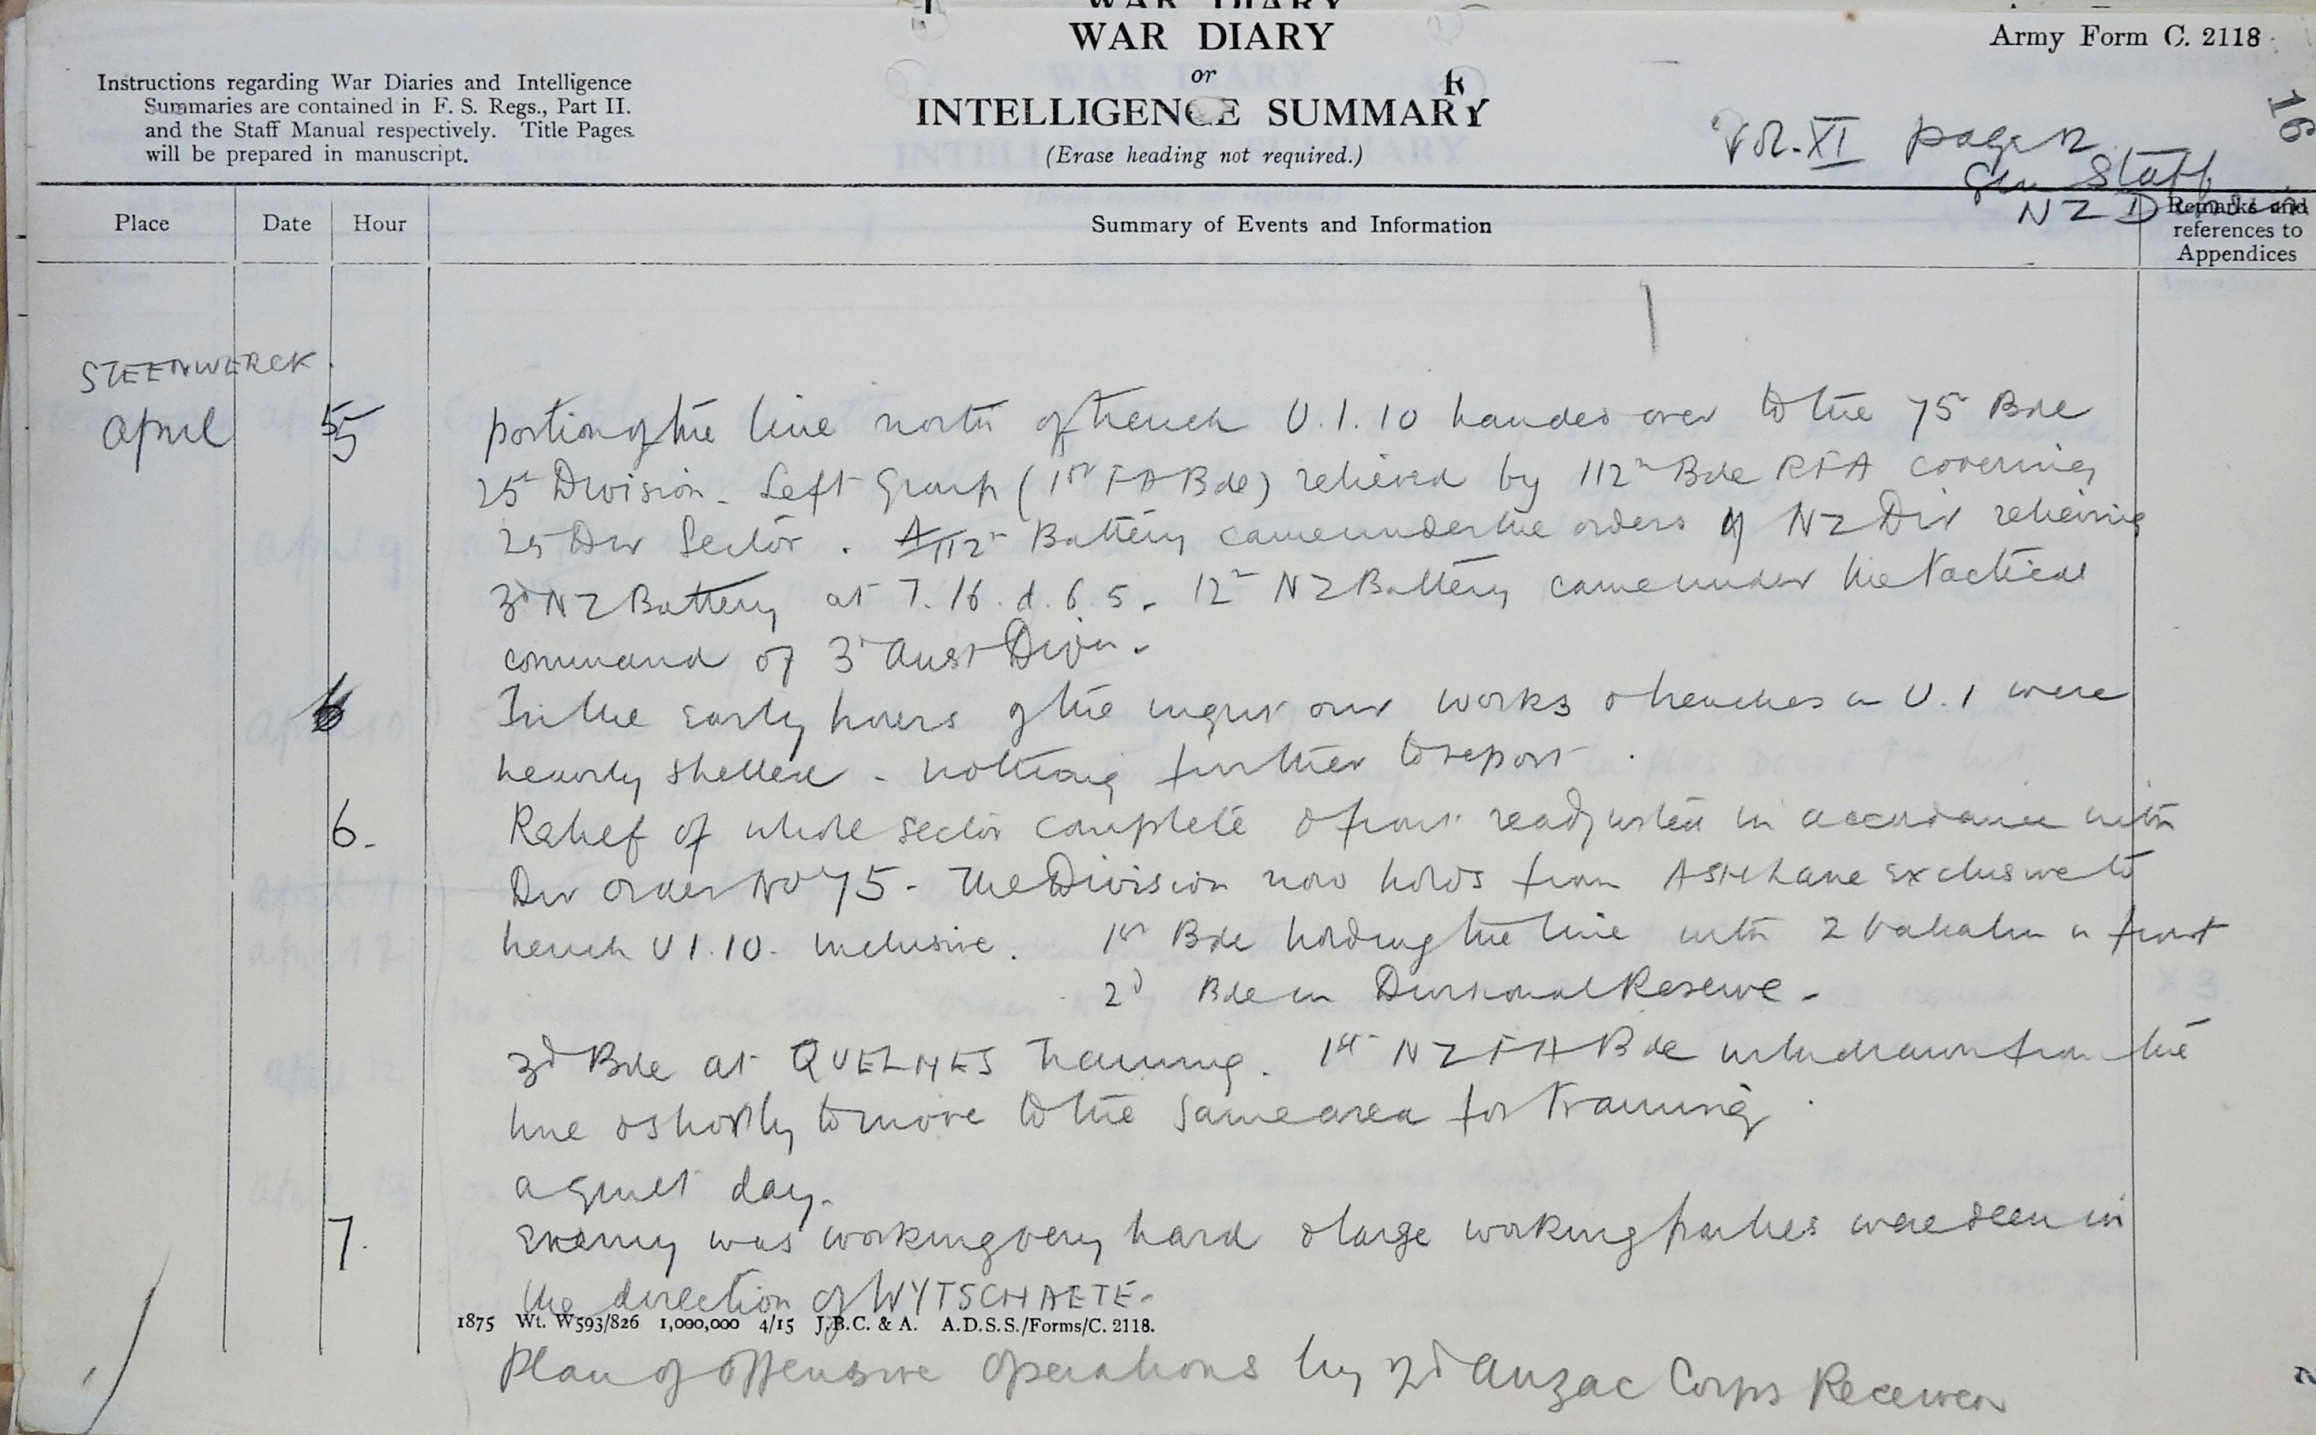 WAR DIARY
WAR DIARY
or
INTELLIGENCE SUMMARY
(Erase heading not required.)
Army Form C. 2118
16
Instructions regarding War Diaries and Intelligence
Summaries are contained in F. S. Regs., Part II.
and the Staff Manual respectively. Title Pages
will be prepared in manuscript.
Vol. XI page 2
Gen Staff
N Z Division
Place
Date
Hour
Summary of Events and Information
Remarks and
references to
Appendices
STEENWERCK.
April 5 portion of the line north of trench U.1.10 handed over to the 75 Bde
25th Division - Left Group (1st FA Bde) relieved by 112th Bde RFA covering
25 Div Sector. A/112th Battery came under the orders of NZ Div relieving
3rd NZ Battery at T.16.d.6.5. 12th NZ Battery came under the tactical
command of 3rd Aust Divn.
In the early hours of the night our works & trenches in U.1 were
heavily shelled - nothing further to report.
6. Relief of whole sector complete & front readjusted in accordance with
Div order No 75 - The Division now holds from Ash Lane exclusive to
trench U1.10. inclusive. 1st Bde holding the line with 2 battalions in front
2d Bde in Divisional Reserve -
3d Bde at QUELMES training. 1st NZFA Bde withdrawn from the
line & shortly to move to the same area for training.
a quiet day.
7. Enemy was working very hard & large working parties were seen in
the direction of WYTSCHAETE-
1875 Wt. W593/826 1,000,000 4/15 J.B.C. & A. A.D.S.S./Forms/C. 2118.
Plan of offensive operations by 2d Anzac Corps Received